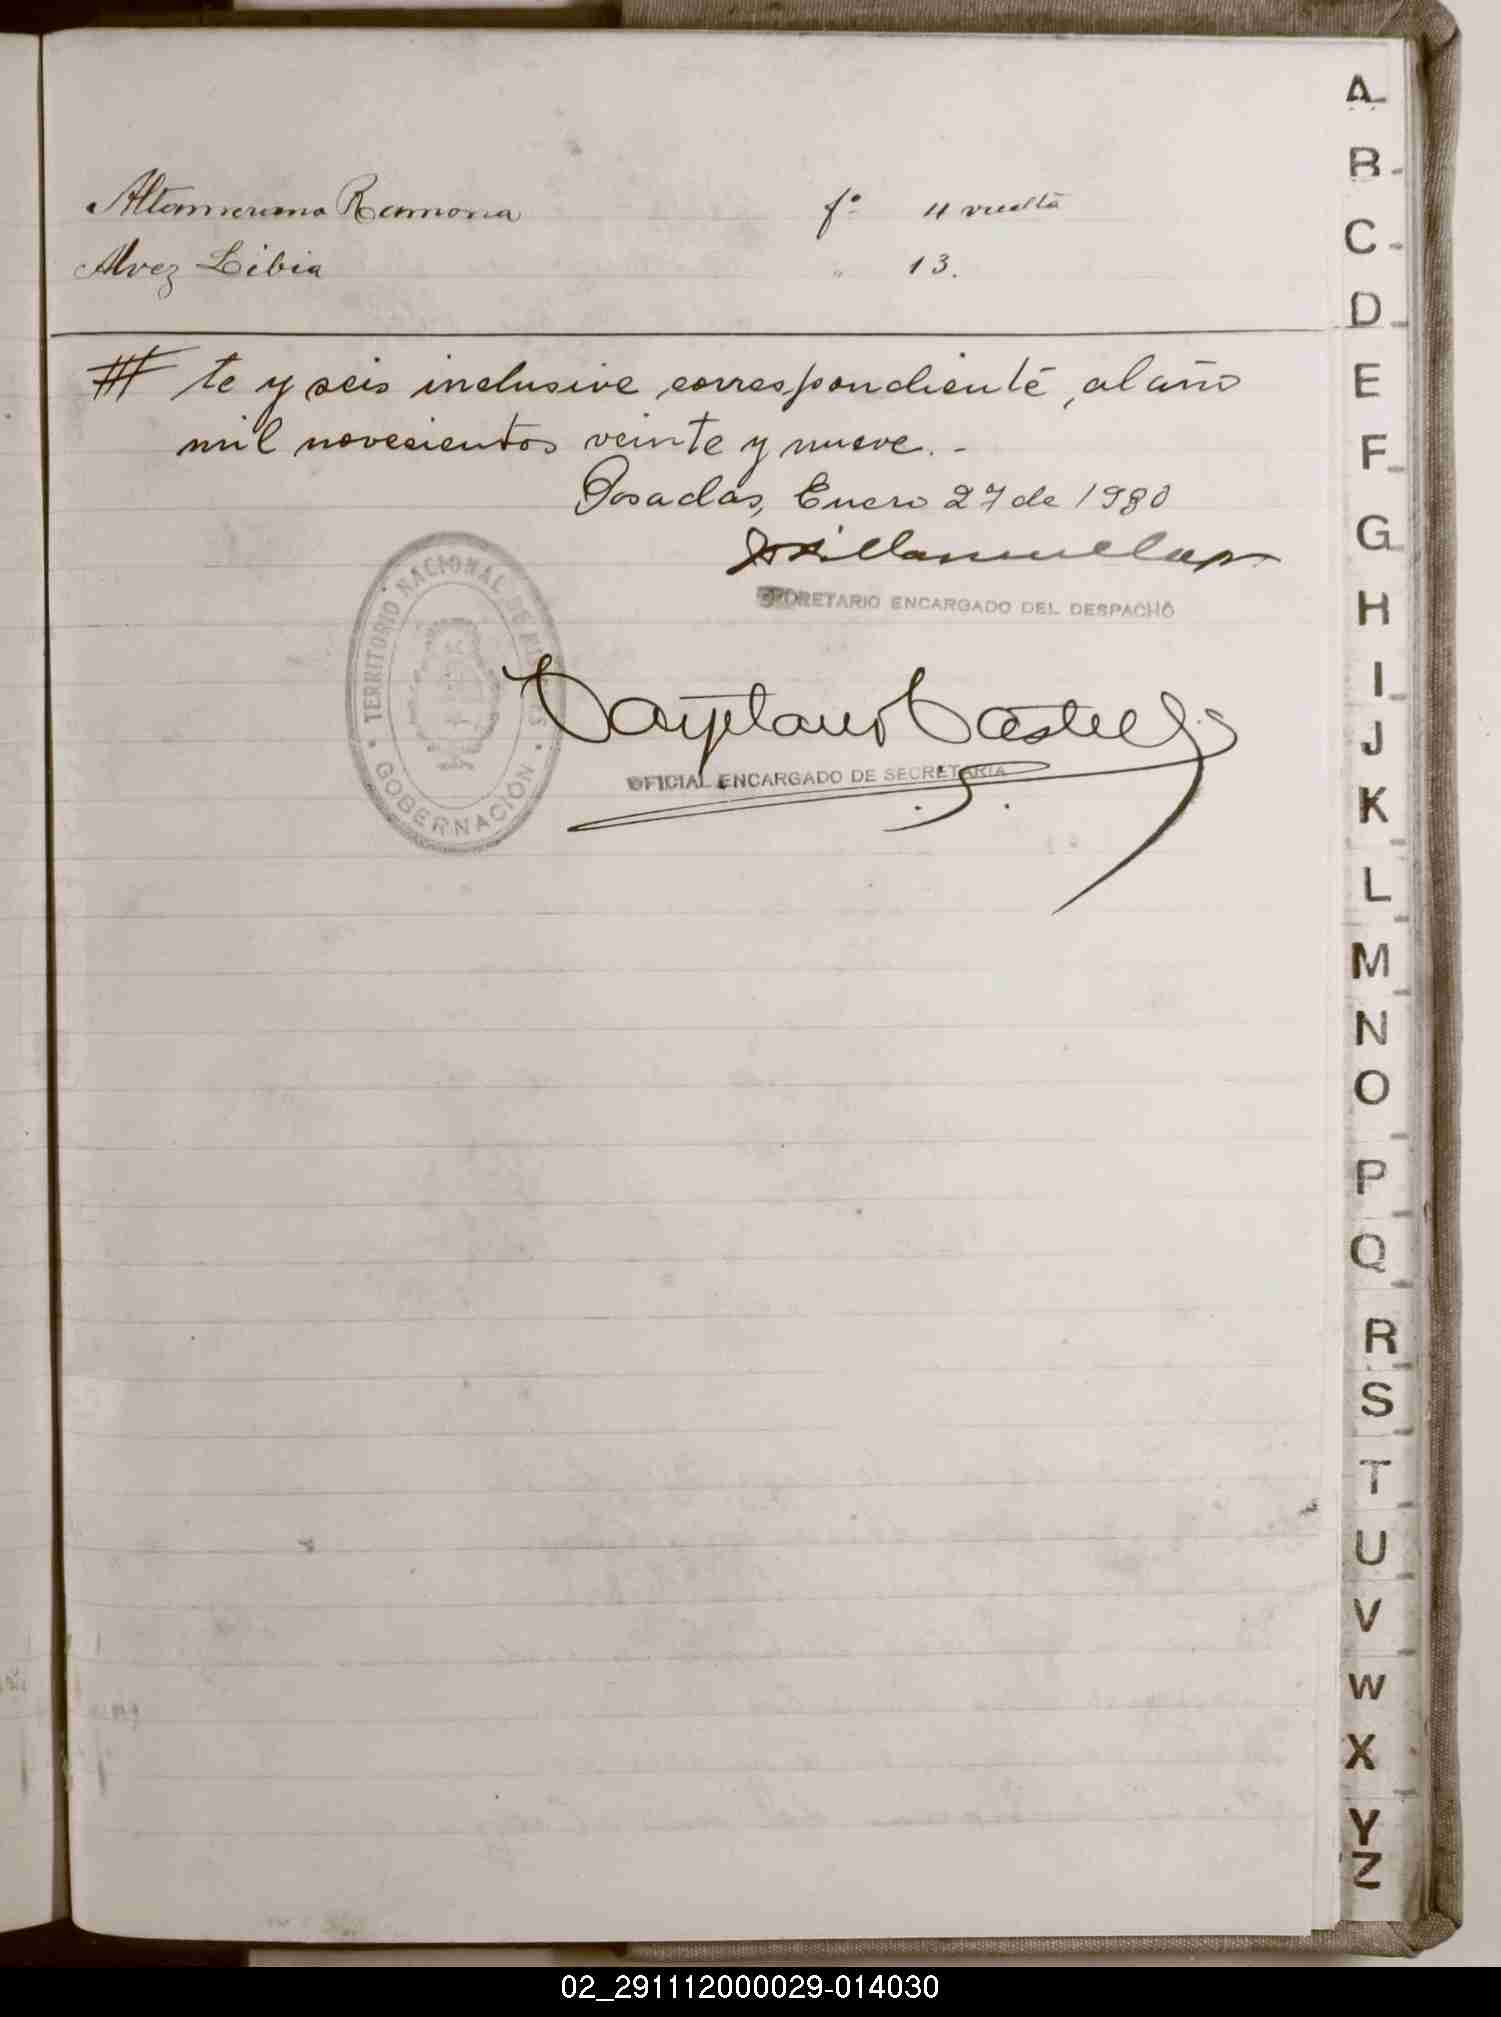 Altamerano Ramona fº 4 vuelta
Alvez Libia " 13.
te y seis inclusive, correspondiente, al año
mil novecientos veinte y nueve.-
Posadas, Enero 27 de 1930
SECRETARIO ENCARGADO DEL DESPACHO
TERRITORIO NACIONAL DE MISIONES
GOBERNACIÓN
Cayetano Castell
OFICIAL ENCARGADO DE SECRETARIA
A
B
C
D
E
F
G
H
I
J
K
L
M
N
O
P
Q
R
S
T
U
V
W
X
Y
Z
02_291112000029-014030